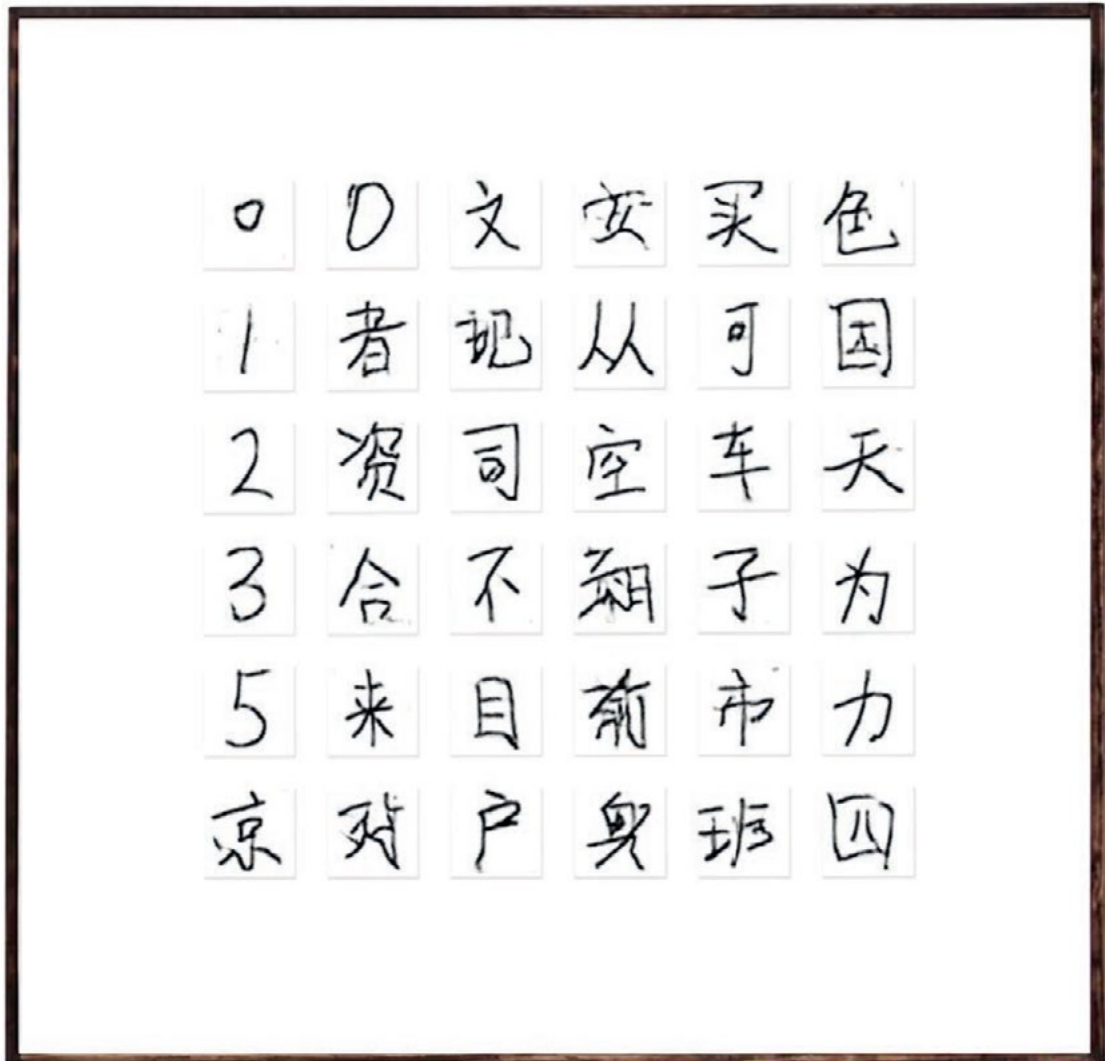 0 0 文 安 买 色
1 者 现 从 可 因
2 资 司 空 车 天
3 合 不 翔 子 为
5 来 目 前 市 力
京 对 户 奥 班 四